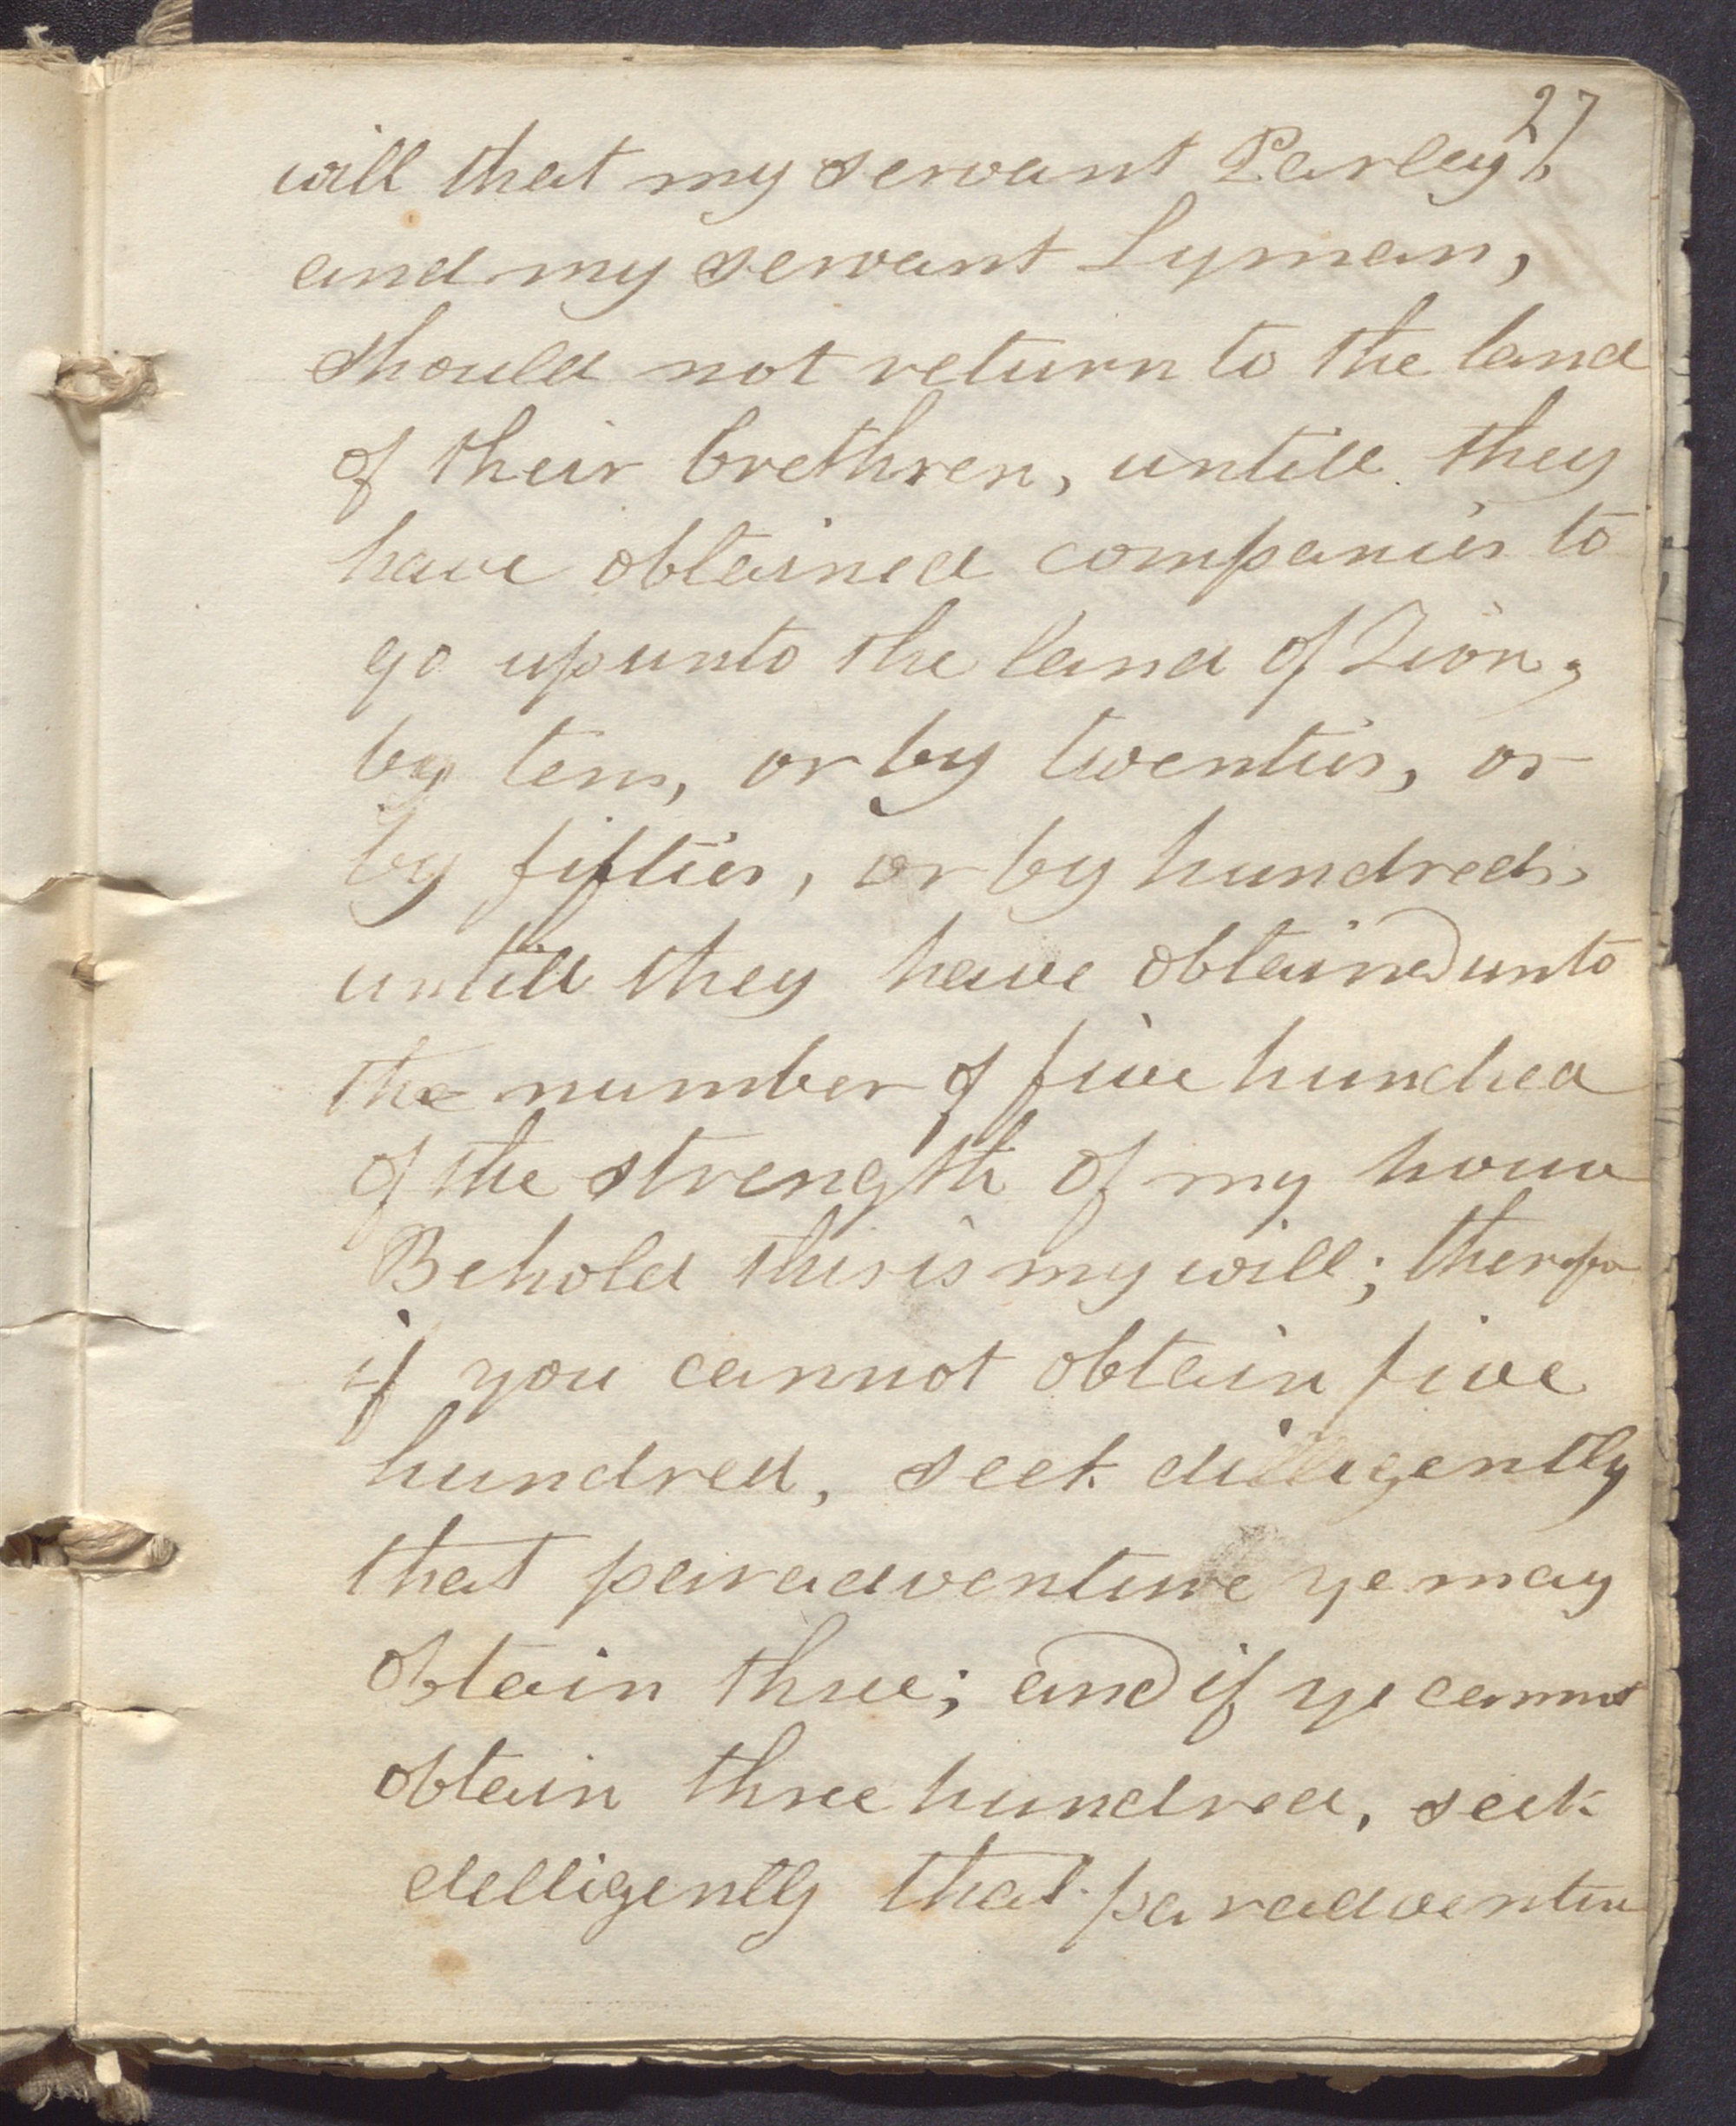 27
will that my servant Parley,
and my servant Lyman,
should not return to the land
of their brethren, untill they
have obtained companies to
go up unto the land of Zion,
by tens, or by twenties, or
by fifties, or by hundreds,
untill they have obtained unto
the number of five hundred
of the strength of my house
Behold this is my will; therefore
if you cannot obtain five
hundred, seek dilligently
that paradventure ye may
obtain three; and if ye cannot
obtain three hundred, seek
delligently that paradventure